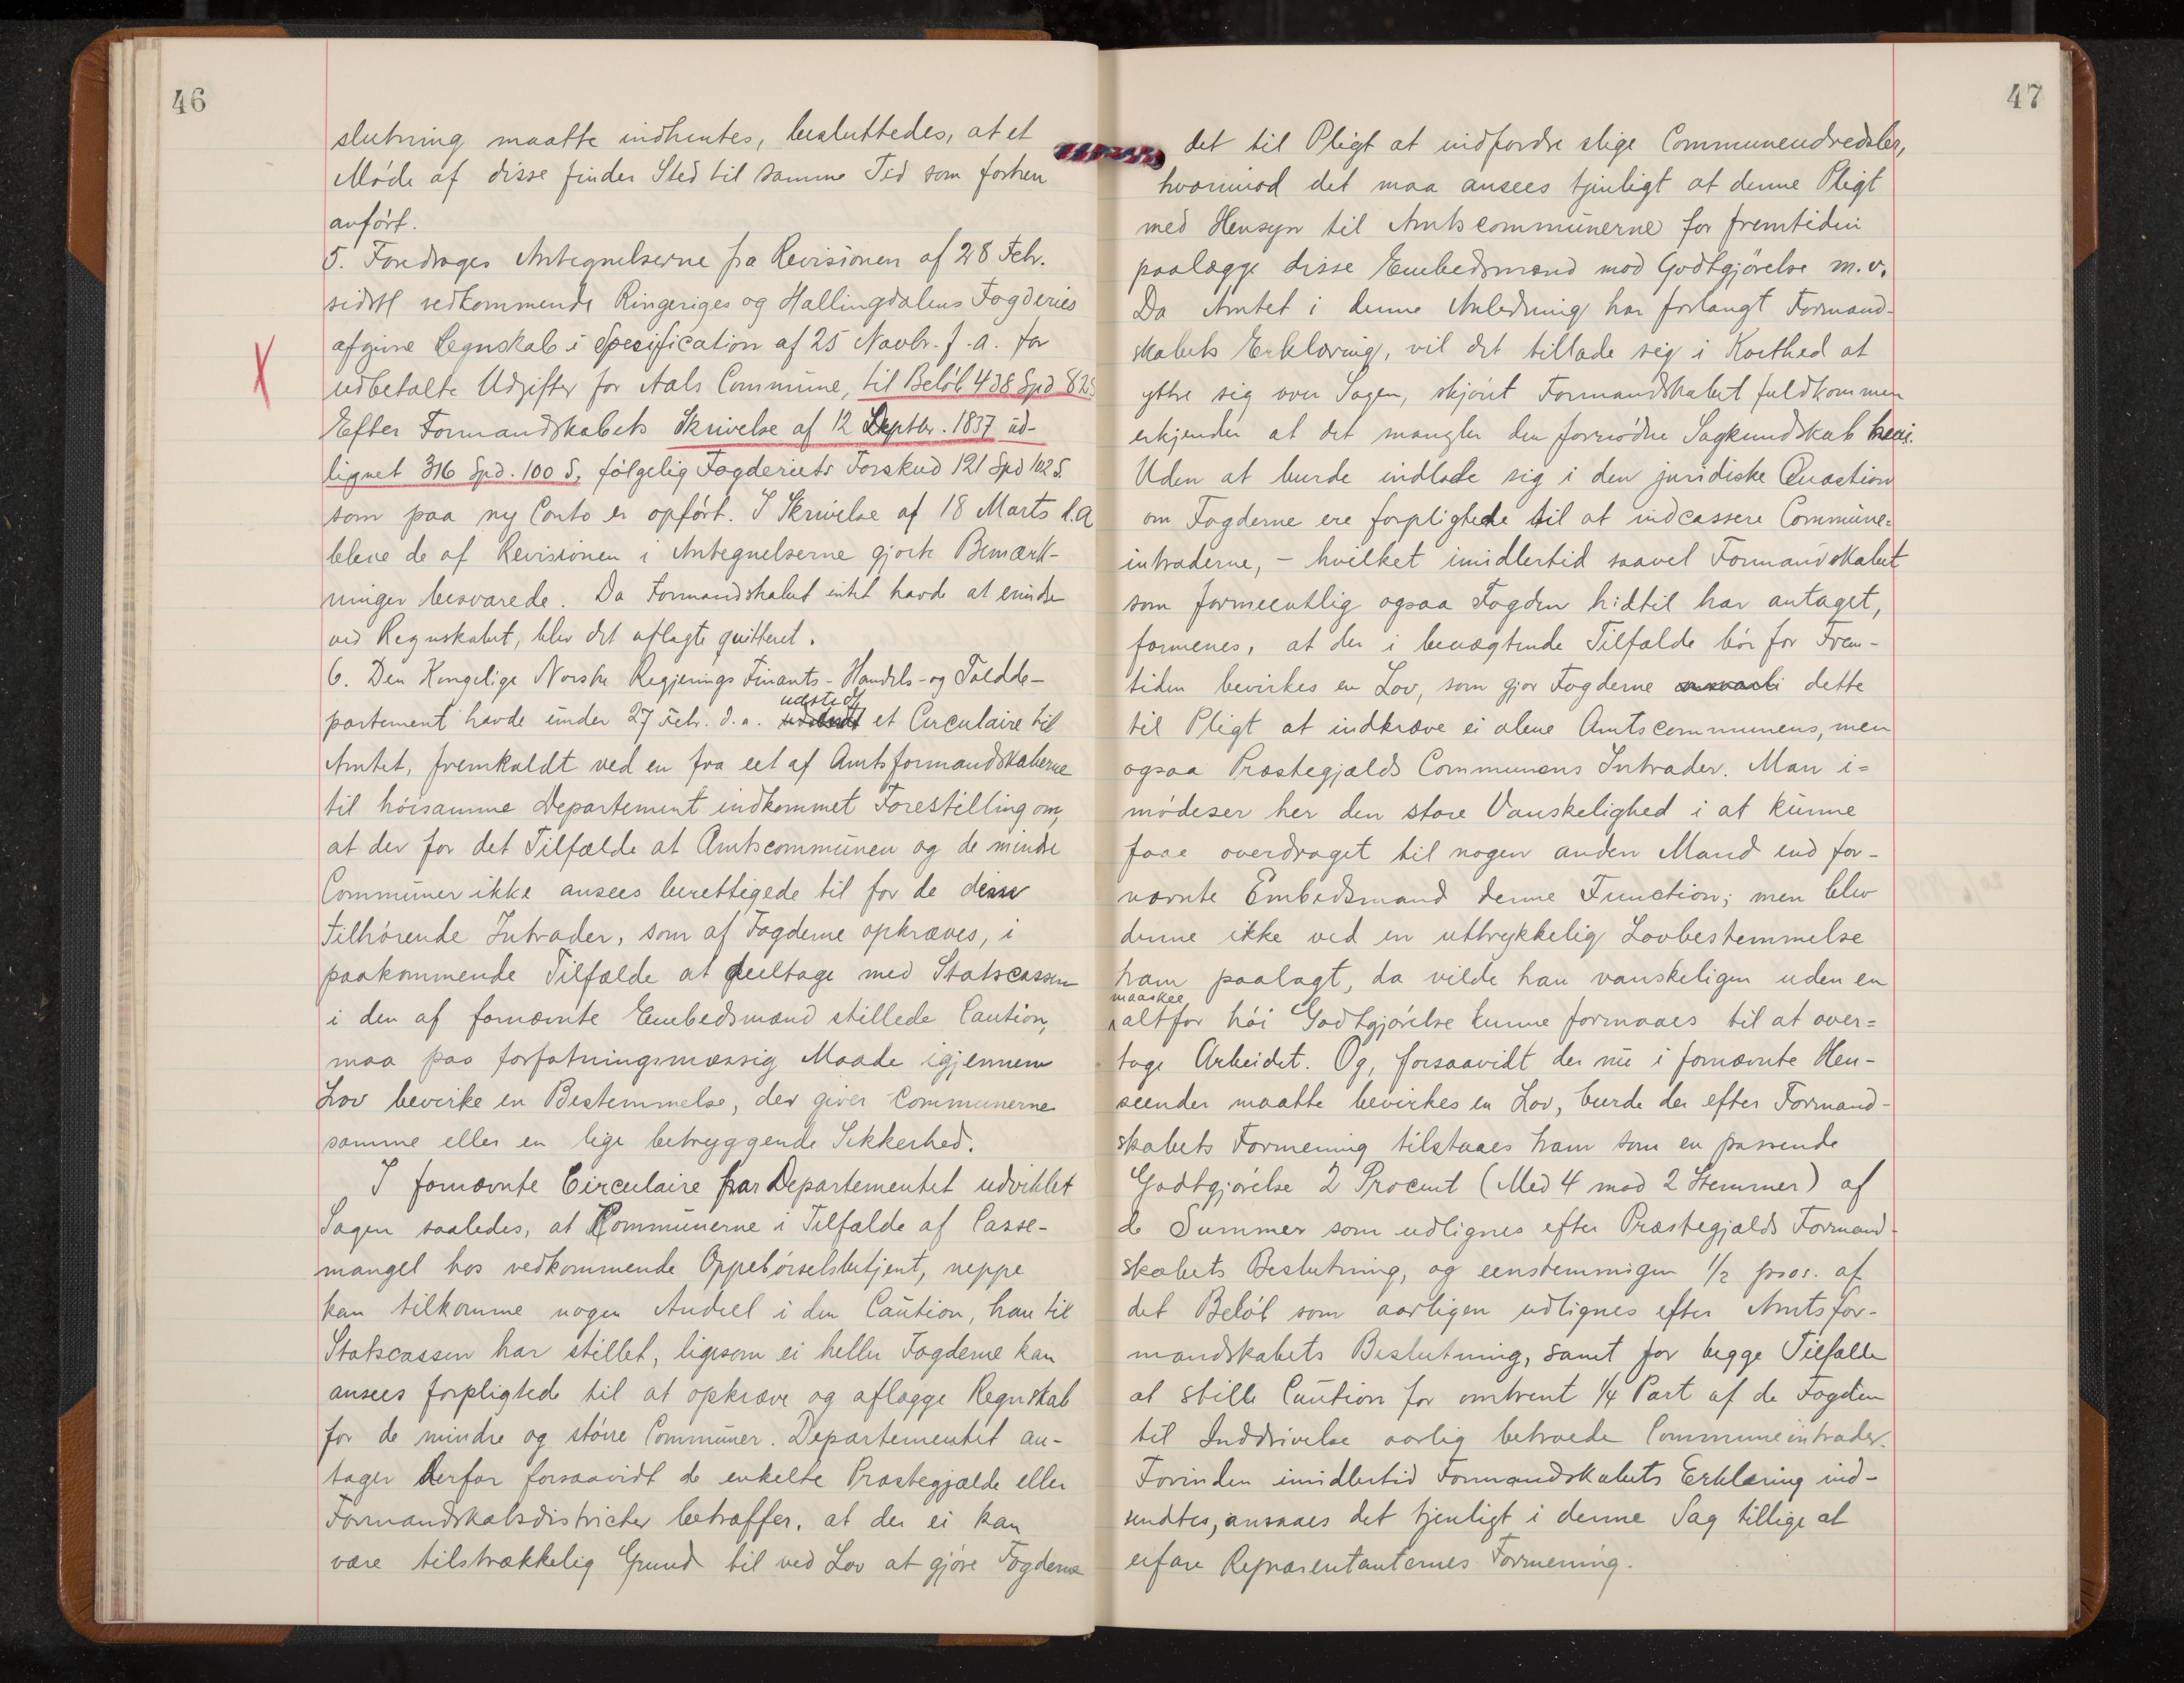 46
slutning maatte indhentes, besluttedes, at et
Møde af disse finder Sted til samme Tid som forhen
anført.
5. Foredroges Antegnelserne fra Revisionen af 28 Febr.
sidstl vedkommende Ringeriges og Hallingdalens Fogderies
afgivne Regnskab i Specification af 25 Novbr. f. a. for
udbetalte Udgifter for Aals Commune, til Beløb 438 Spd 82 S
Efter Formandskabets Skrivelse af 12 Septbr. 1837 ud-
lignet 316 Spd. 100 S, følgelig Fogderiets Forskud 121 Spd 102 S.
som paa ny Conto er opført. I Skrivelse af 18 Marts d.a
bleve de af Revisionen i Antegnelserne gjorte Bemærk-
ninger besvarede. Da Formandskabet intet havde at erindre
ved Regnskabet, blev det aflagte quitteret.
6. Den Kongelige Norske Regjerings Finants- Handels- og Toldde-
udstedt
partement havde under 27 Febr. d.a. et Circulaire til
Amtet, fremkaldt ved en fra eet af Amtsformandskaberne
til høisamme Departement indkommet Forestilling om,
at der for det Tilfælde at Amtscommunen og de mindre
Communer ikke ansees berettigede til for de disse
tilhørende Intrader, som af Fogderne opkræves, i
paakommende Tilfælde at deeltage med Statscassen
i den af fornævnte Embedsmænd stillede Caution,
maa paa forfatningsmæssig Maade igjennem
Lov bevirke en Bestemmelse, der giver Communerne
samme eller en lige betryggende Sikkerhed.
I fornævnte Circulaire har Departementet udviklet
Sagen saaledes, at Communerne i Tilfælde af Casse-
mangel hos vedkommende Oppebørselsbetjent, neppe
kan tilkomme nogen Andeel i den Caution, han til
Statscassen har stillet, ligesom ei heller Fogderne kan
ansees forpligtede til at opkræve og aflægge Regnskab
for de mindre og større Communer. Departementet an-
tager derfor forsaavidt de enkelte Præstegjælde eller
Formandskabsdistricter betræffer, at der ei kan
være tilstrækkelig Grund til ved Lov at gjøre Fogderne
47
det til Pligt at indfordre slige Communeudredsler,
hvorimod det maa ansees tjenligt at denne Pligt
med Hensyn til Amtscommunerne for fremtiden
paalægge disse Embedsmænd mod Godtgjørelse m.v.
Da Amtet i denne Anledning har forlangt Formand-
skabets Erklæring, vil det tillade sig i Korthed at
yttre sig over Sagen, skjønt Formandskabet fuldkommen
erkjender at det mangler den fornødne Sagkundskab heri.
Uden at burde indlade sig i den juridiske Quæstion
om Fogderne ere forpligtede til at indcassere Commune=
intraderne, - hvilket imidlertid saavel Formandskabet
som formeentlig ogsaa Fogden hidtil har antaget,
formenes, at der i benægtende Tilfælde bør for Frem-
tiden bevirkes en Lov, som gjør Fogderne dette
til Pligt at indkræve ei alene Amtscommunens, men
ogsaa Præstegjælds Communens Intrader. Man i=
mødeser her den store Vanskelighed i at kunne
faae overdraget til nogen anden Mand end for-
nævnte Embedsmand denne Function; men blev
denne ikke ved en uttrykkelig Lovbestemmelse
ham paalagt, da vilde han vanskeligen uden en
maaskee
altfor høi Godtgjørelse kunne formaaes til at over=
tage Arbeidet. Og, forsaavidt der nu i fornævnte Hen-
seender maatte bevirkes en Lov, burde der efter Formand-
skabets Formening tilstaaes ham som en passende
Godtgjørelse 2 Procent (Med 4 mod 2 Stemmer) af
de Summer som udlignes efter Præstegjælds Formand-
skabets Beslutning, og eenstemmigen 1/2 proc. af
det Beløb som aarligen udlignes efter Amtsfor-
mandskabets Beslutning, samt for begge Tilfælde
at stille Caution for omtrent 1/4 Part af de Fogden
til Inddrivelse aarlig betroede Communeintrader.
Forinden imidlertid Formandskabets Erklæring ind-
sendtes, ansaaes det tjenligt i denne Sag tillige at
erfare Repræsentanternes Formening.